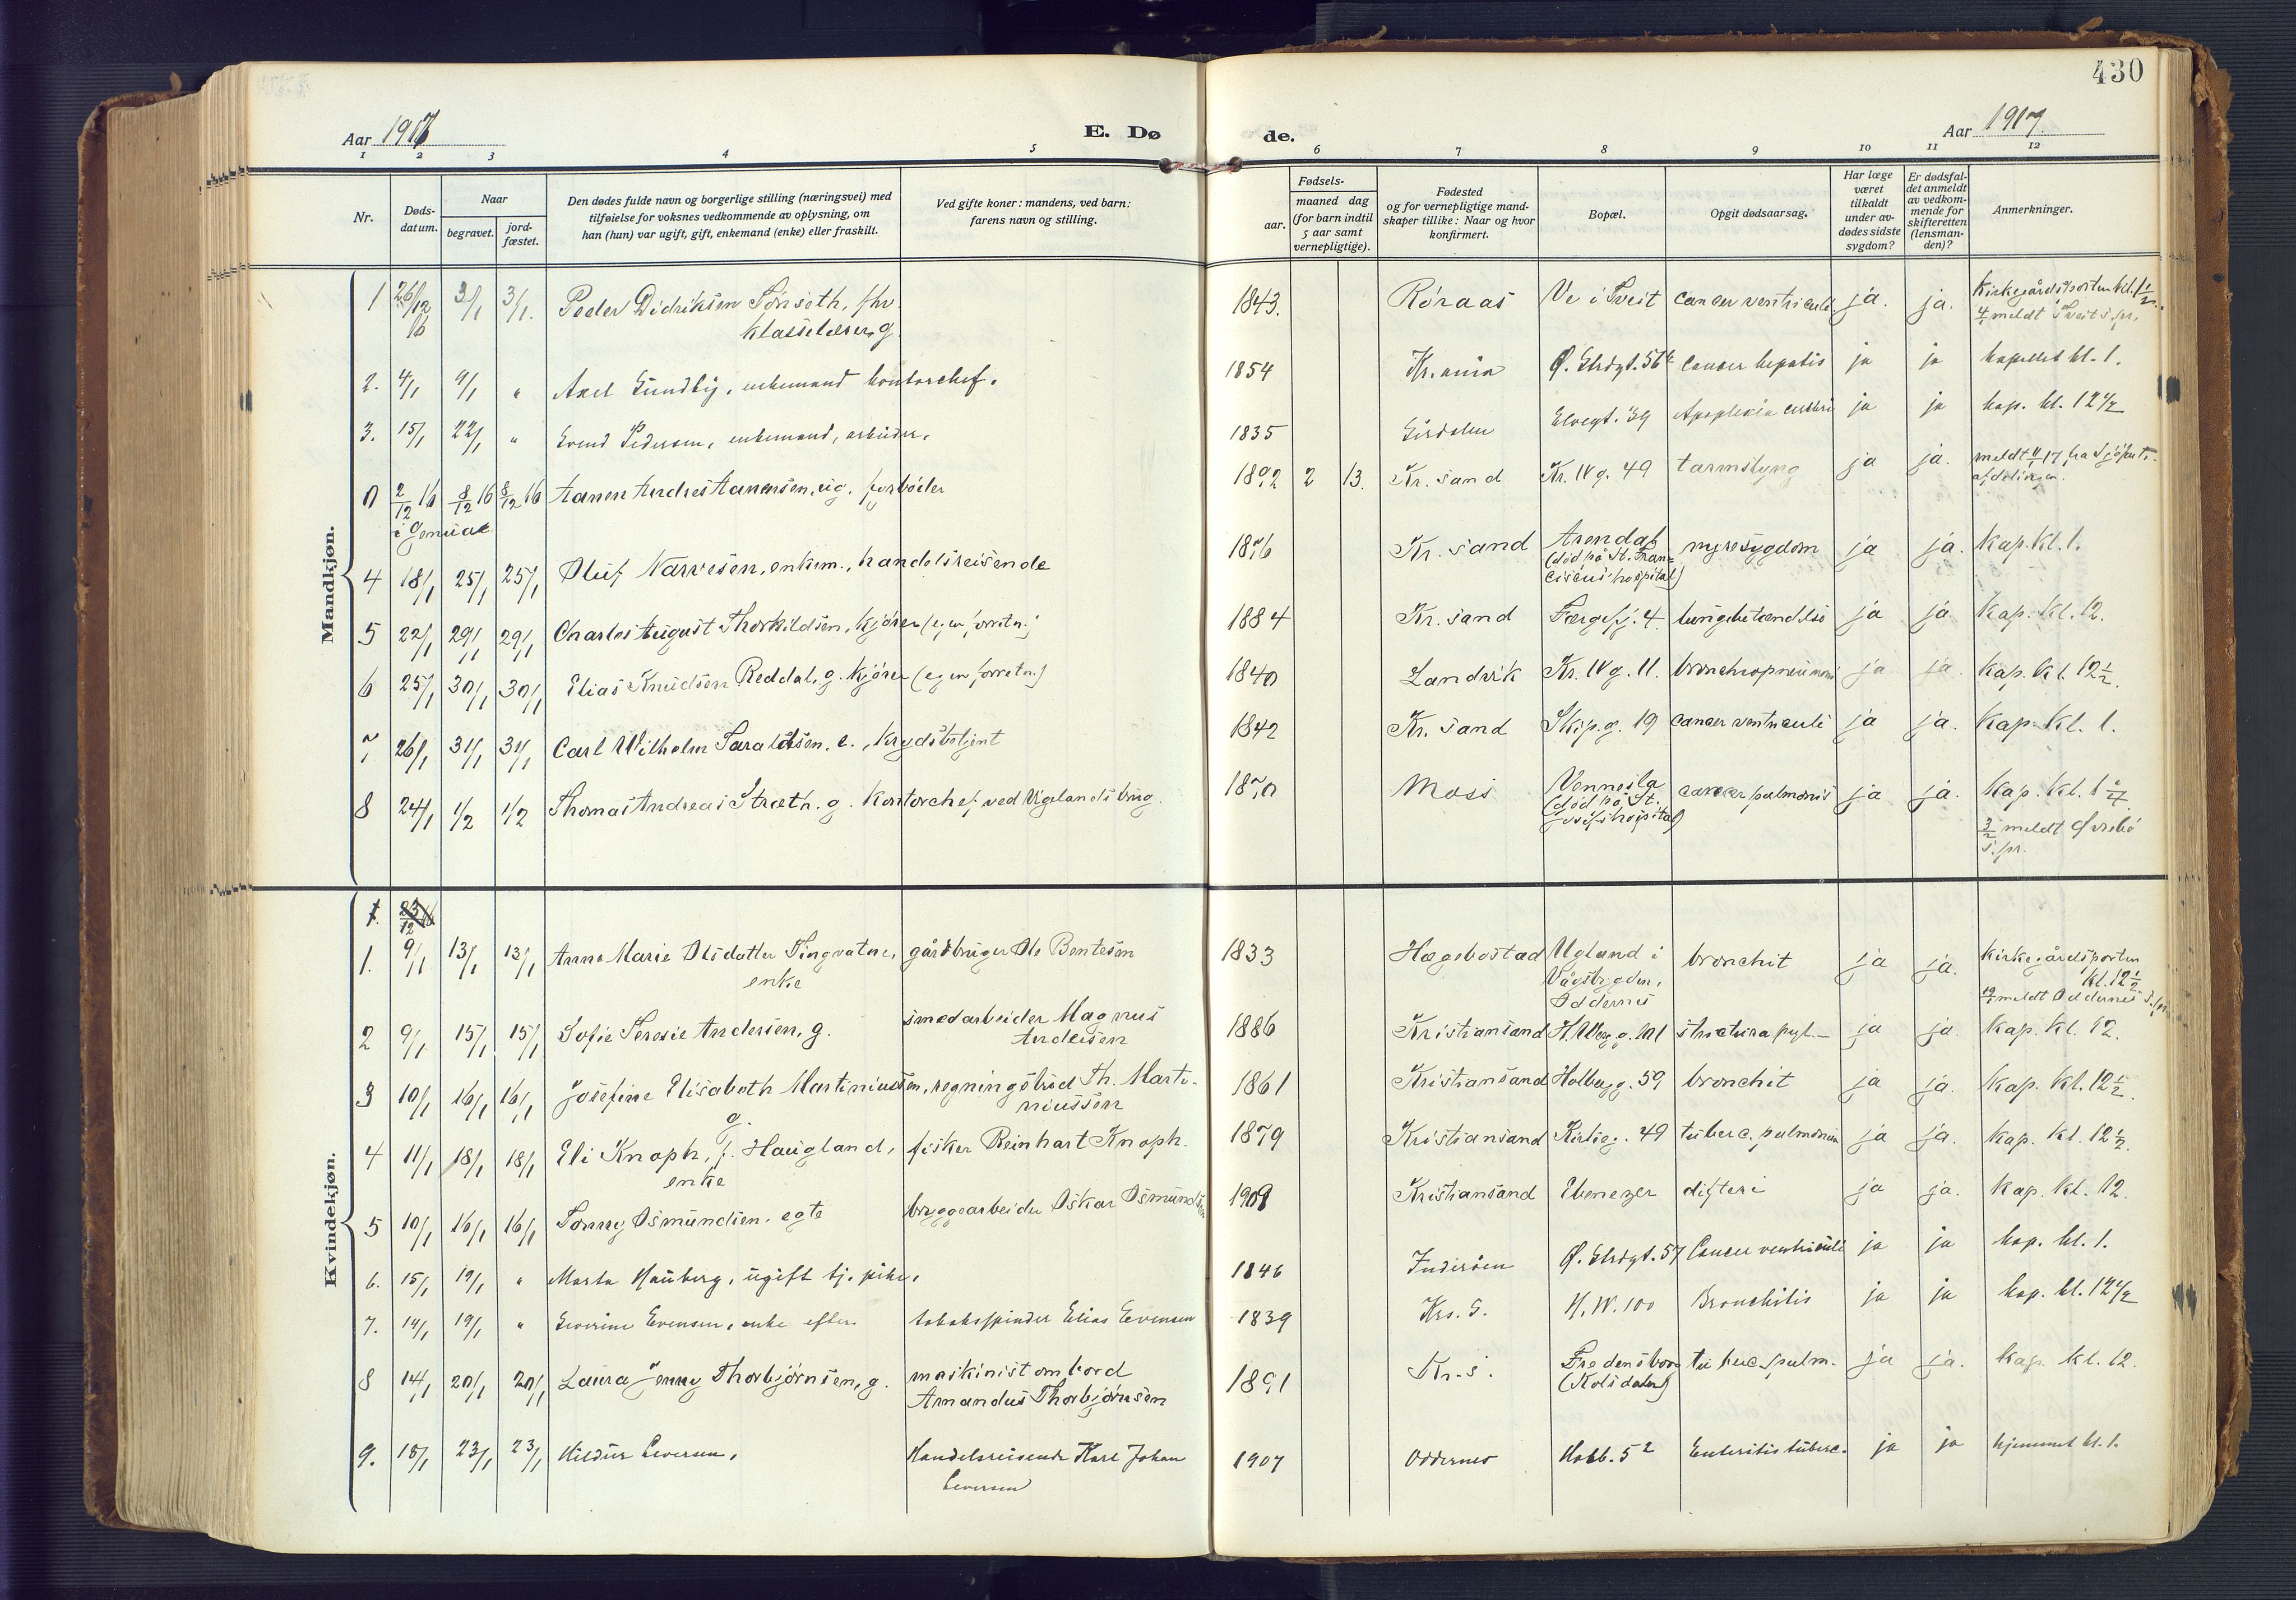 430
Aar 1917
E. Dø
de.
Aar 1917.
1 2 3 4 5 6 7 8 9 10 11 12
Nr.
Døds-
datum.
Naar
begravet.
jord-
fæstet.
Den dødes fulde navn og borgerlige stilling (næringsvei) med
tilføielse for voksnes vedkommende av oplysning, om
han (hun) var ugift, gift, enkemand (enke) eller fraskilt.
Ved gifte koner: mandens, ved barn:
farens navn og stilling.
Fødsels-
aar.
maaned dag
(for barn indtil
5 aar samt
vernepligtige).
Fødested
og for vernepligtige mand-
skaper tillike: Naar og hvor
konfirmert.
Bopæl.
Opgit dødsaarsag.
Har læge
været
tilkaldt
under av-
dødes sidste
sygdom?
Er dødsfal-
det anmeldt
av vedkom-
mende for
skifteretten
(lensman-
den)?
Anmerkninger.
Mandkjøn.
1 26/12 16 3/1 3/1. Peder Didriksen Tønseth, fhv. klasselærer, g. 1843. Røraas Ve i Tveit cancer ventriculi ja. ja. Kirkegårdsporten kl. 1 1/2.
4/1 meldt Tveit s.pr.
2. 4/1 9/1 " Axel Sundby, enkemand kontorchef. 1854 Kr.ania Ø. Strdgt. 56 cancer hepatis ja ja kapellet kl. 1.
3. 15/1 22/1 " Svend Pedersen, enkemand, arbeider. 1835 Sirdalen Elvegt. 39 Apoplexia cerebri ja ja kap. kl. 12 1/2
0 2/12 16 8/12 16 8/12 16 Aanen Andres Aanensen, ug. fyrbøder 1892 2 13. Kr.sand Kr. IV g. 49 tarmslyng ja ja.
i Genua
4 18/1 25/1 25/1 Oluf Narvesen, enkem., handelsreisende 1876 Kr.sand Arendal
(død på St. Fran-
ciscus' hospital) nyresygdom ja ja. Kap. kl. 1.
5 22/1 29/1 29/1 Charles August Thorkildsen, kjører (egen forretn.) 1884 Kr.sand Færgefj. 4. lungebetændelse ja ja Kap. kl. 12.
6 25/1 30/1 30/1 Elias Knudsen Reddal, g. kjører (egen forretn.) 1840 Landvik Kr. IV g. 11. bronchopneumoni ja ja. Kap. kl. 12 1/2.
7 26/1 31/1 31/1 Carl Wilhelm Saraldsen, e., krydsbetjent 1842 Kr.sand Skip.g. 19 cancer ventriculi ja ja. Kap. kl. 1.
8 24/1 1/2 1/2 Thomas Andreas Stræth. g. Kontorchef ved Vigelands brug. 1870 Moss Vennesla
(død på St.
Josefs hospital) cancer pulmonis ja ja. Kap. kl. 1
3/2 meldt Øvrebø
s.pr.
Kvindekjøn.
1. 23/12 16
1. 9/1 13/1 13/1 Anne Marie Olsdatter Tingvatne, enke gårdbruger Ole Bentesen 1833 Hægebostad Ugland i
Vågsbygden,
Oddernes bronchit ja ja. Kirkegårdsporten
kl. 12 1/2
meldt Oddernes s.pr.
2 9/1 15/1 15/1 Sofie Teresie Andersen, g. smedarbeider Magnus
Andersen 1886 Kristiansand H. Werg.g. 101 strictura pyl.- ja ja. Kap. kl. 12.
3 10/1 16/1 16/1 Josefine Elisabeth Martiniussen, g. regningsbud Th. Marti-
niussen 1861 Kristiansand Holbergg. 59 bronchit ja ja. Kap. kl. 12 1/2.
4 11/1 18/1 18/1 Eli Knoph, f. Haugland, enke fisker Reinhart Knoph. 1879 Kristiansand 49 tuberc. pulmonum ja ja. Kap. kl. 12 1/2.
5 10/1 16/1 16/1 Tonny Osmundsen, egte bryggearbeider Oskar Osmundsen 1909 Kristiansand Ebenezer difteri ja ja. Kap. kl. 12.
6. 15/1 19/1 " Marta Hauberg, ugift tj. pike. 1846 Inderøen Ø. Strdgt. 57 Cancer ventriculi ja ja kap. kl. 1.
7. 14/1 19/1 " Severine Evensen, enke efter tobaksspinder Elias Evensen 1839 Krs. S. H.W. 100 Bronchitis ja ja kap. kl. 12 1/2
8 14/1 20/1 20/1 Laura Jenny Thorbjørnsen, g. maskinist ombord
Amandus Thorbjørnsen 1891 Kr.s. Fredensborg
(Kolsdalen) tuberc. pulm. ja ja. Kap. kl. 12.
9. 18/1 23/1 23/1 Hildur Iversen, Handelsreisende Karl Johan
Iversen 1907 Oddernes Holb. 52 Enteritis tuberc. ja ja hjemmet kl. 1.